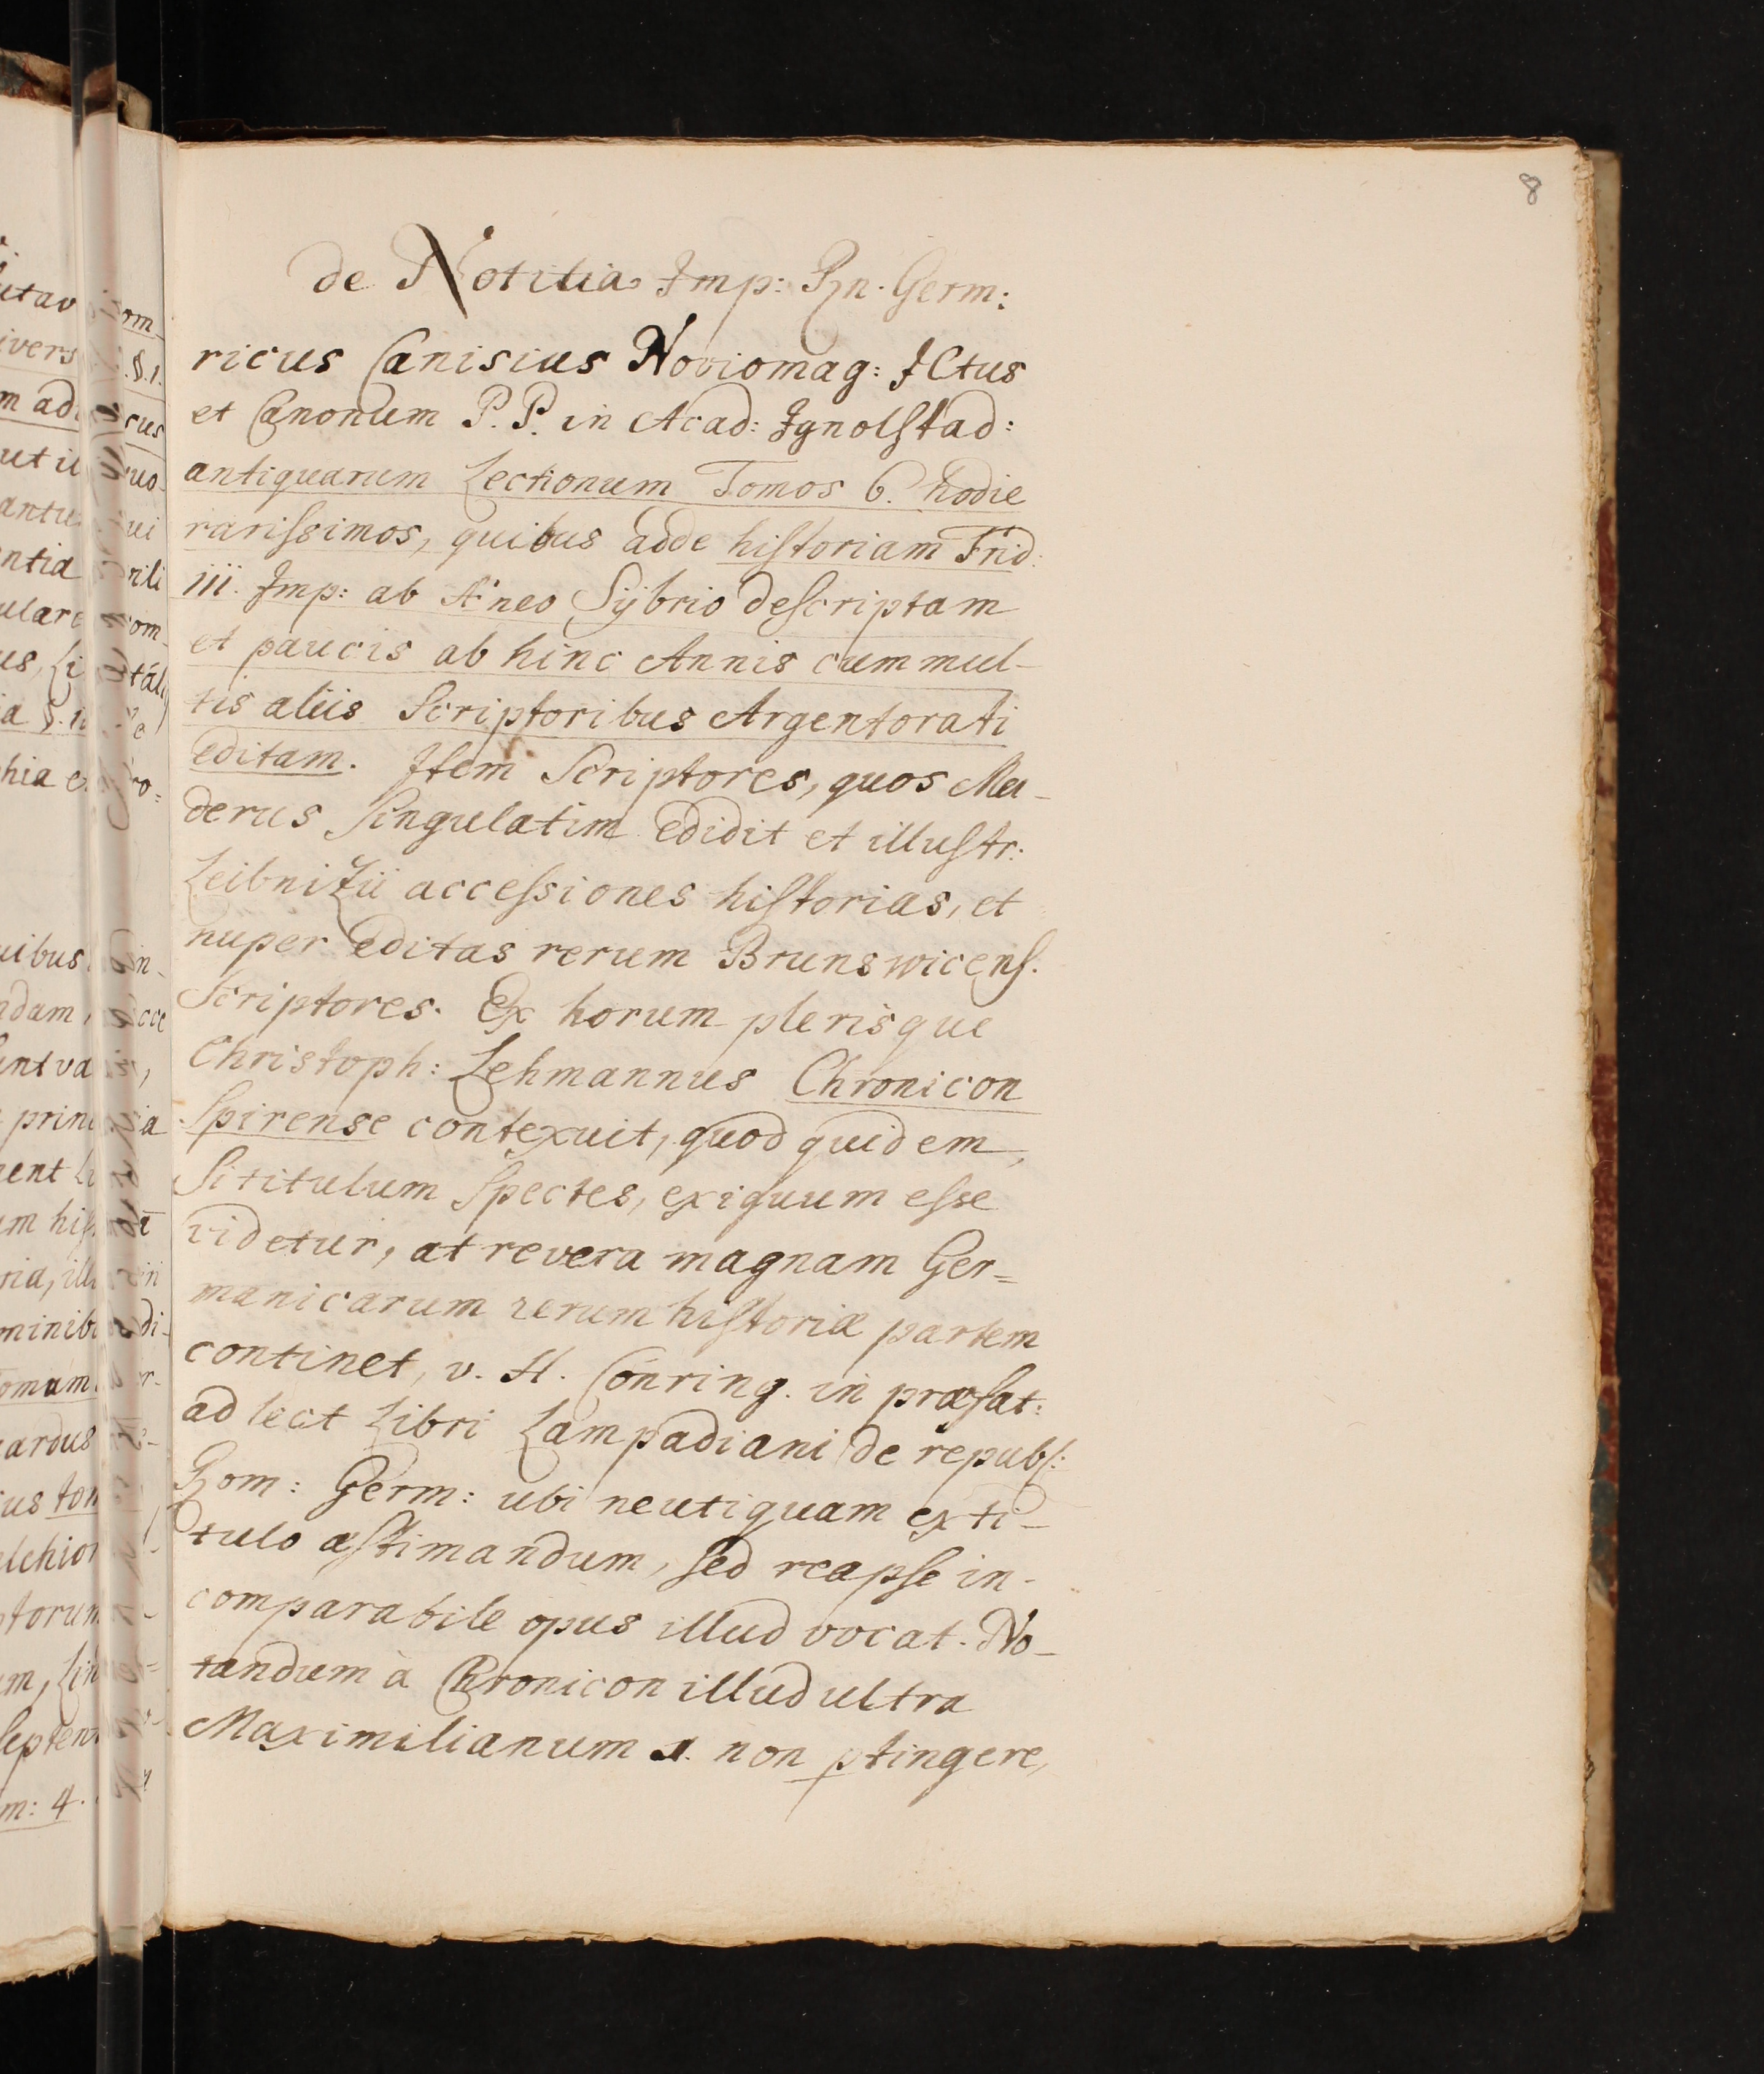 8
de Notitia Imp: Rn. Germ:
ricus Canisius Noviomag: JCtus
et Canonum P. P. in Acad: Ignolstad:
antiquarum Lectionum Tomos 6. hodie
rarissimos, quibus adde historiam Frid.
iii. Imp: ab Æneo Sÿbrio descriptam
et paucis ab hinc Annis cum mul-
tis aliis Scriptoribus Argentorati
editam. Item Scriptores, quos Ma-
derus singulatim edidit et illustr:
Leibnizii accessiones historias, et
nuper editas rerum Brunswicens.
Scriptores. Ex horum plerisque
Christoph: Lehmannus Chronicon
Spirense contexuit, quod quidem,
Si titulum Spectes, exiguum esse
videtur, at revera magnam Ger=
manicarum rerum historiæ partem
continet, v. H. Conring. in præfat:
ad lect Libri Lampadiani de repubs:
Rom: Germ: ubi neutiquam ex ti-
tulo æstimandum, sed reapse in-
comparabile opus illud vocat. No-
tandum à Chronicon illud ultra
Maximilianum 1. non ptingere,